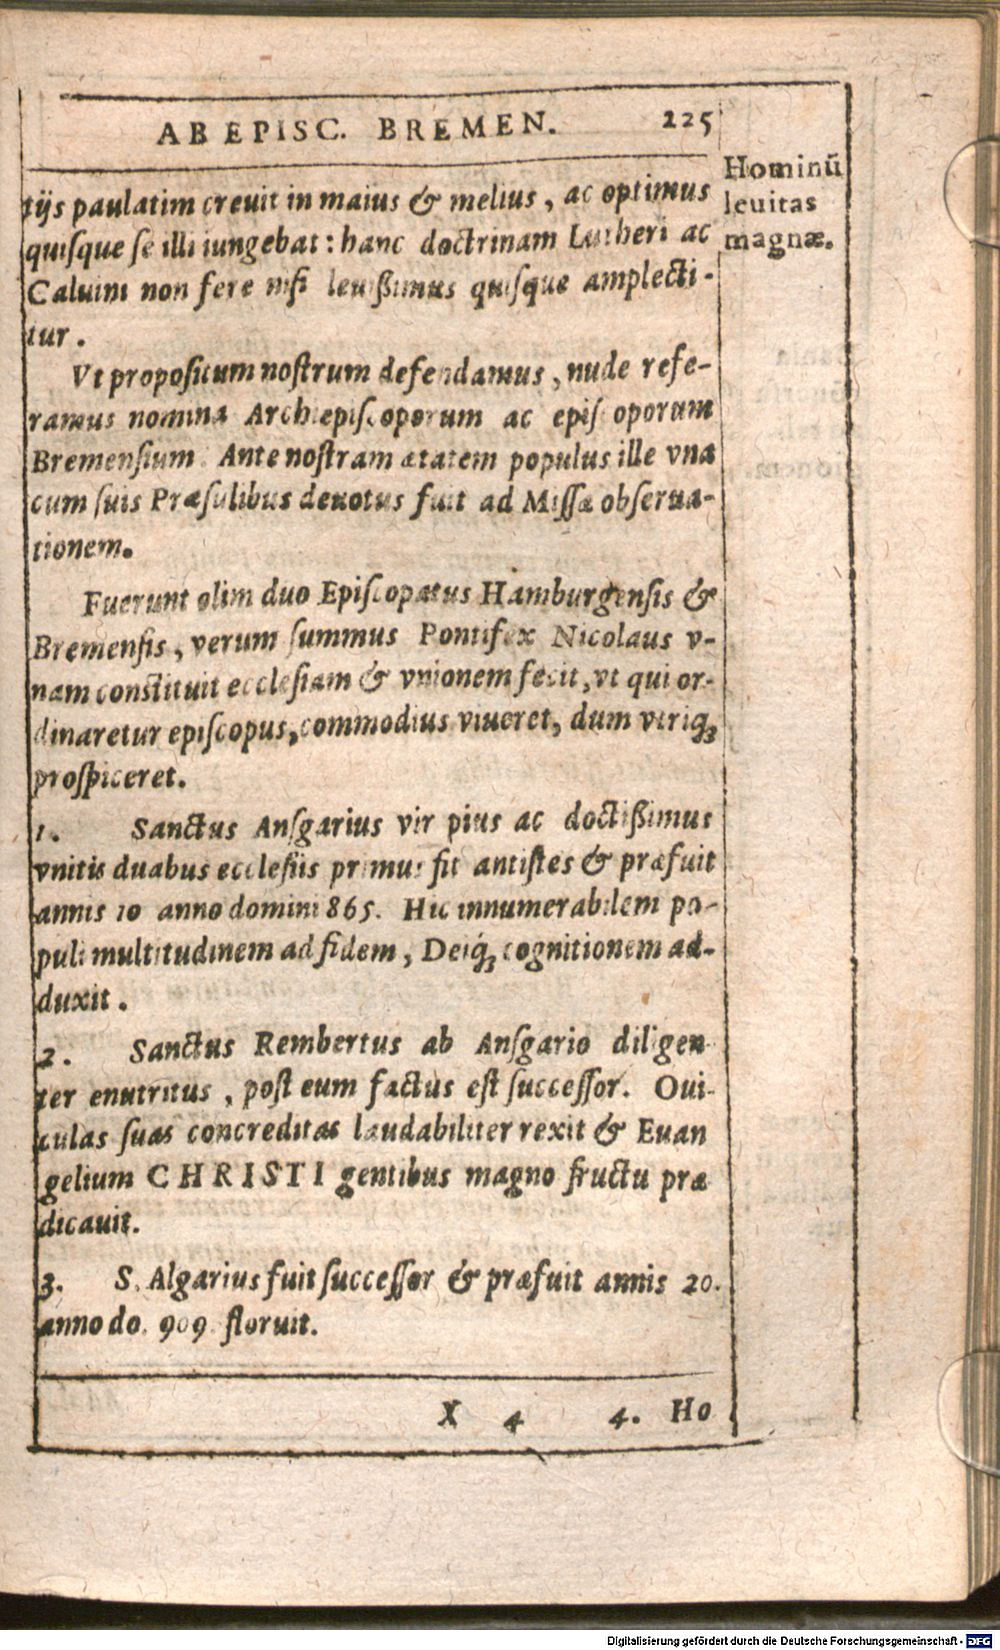 AB EPISC. BREMEN. 225
Hominū
leuitas
magnæ.
tijs paulatim creuit in maius & melius, ac optimus
quiſque ſe illi iungebat: hanc doctrinam Lutheri ac
Caluini non fere niſi leuißimus quiſque amplecti-
tur.
Vt propoſitum noſtrum defendamus, nude refe-
ramus nomina Archiepiſcoporum ac epiſcoporum
Bremenſium. Ante noſtram ætatem populus ille vna
cum ſuis Præſulibus deuotus fuit ad Miſſæ obſerua-
tionem.
Fuerunt olim duo Epiſcopatus Hamburgenſis &
Bremenſis, verum ſummus Pontifex Nicolaus v-
nam conſtituit eccleſiam & vnionem fecit, vt qui or-
dinaretur epiſcopus, commodius viueret, dum vtriq;
proſpiceret.
1. Sanctus Anſgarius vir pius ac doctißimus
vnitis duabus eccleſiis primus fit antiſtes & præfuit
annis 10 anno domini 865. Hic innumerabilem po-
puli multitudinem ad fidem, Deiq; cognitionem ad-
duxit.
2. Sanctus Rembertus ab Anſgario diligen-
ter enutritus, poſt eum factus eſt ſucceſſor. Oui-
culas ſuas concreditas laudabiliter rexit & Euan
gelium CHRISTI gentibus magno fructu præ
dicauit.
3. S. Algarius fuit ſucceſſor & præfuit annis 20.
anno do. 909. floruit.
X 4 4. Ho
Digitalisierung gefördert durch die Deutsche Forschungsgemeinschaft - DFG